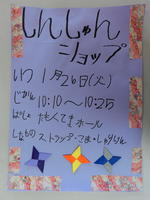 しんしゃん
ショップ
いつ 1月26日(火)
じかん 10:10〜10:25
ばしょ たもくてきホール
しなもの ストラップ・こま・しゅりけん